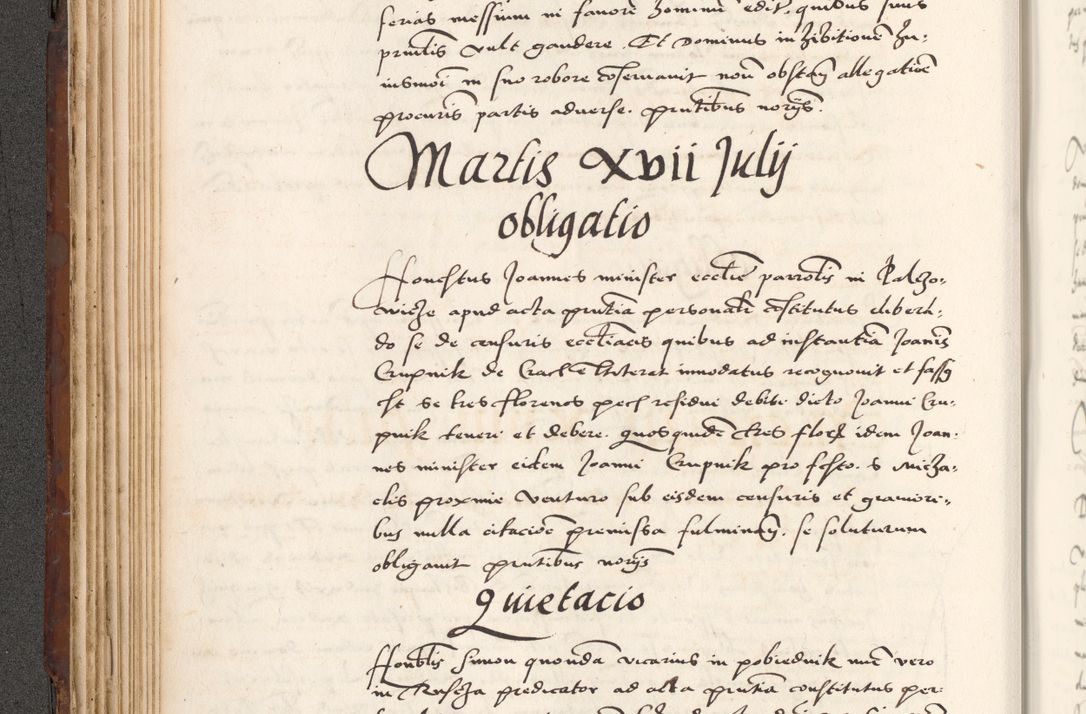 ferias messium in favorē hominū edit. quibus suis
pruilis vult gaudere. Et Dominus inhibitionē hu-
iusmōi in suo robore cōservavit nōn obstañ allegatiōe
procuris partis adverse. prntibus noriis.
Martis XVII Julij
obligatio
Honestus Joannes minister ecclie parrolis in
wicze apud acta prntia personalr cōstitutus cliberā-
do se de censuris eccliacis quibus ad instantiā Joanis
Crupnik de literat innodatus recognovit et fassꝰ
est se tres florenos pecū residui debiti dicto Joanni Cru-
pnik teneri et debere. quos quidē tres flor idem Joan-
nes minister eidem Joanni Crupnik pro festo. S Micha-
elis proxime venturo sub eisdem censuris et graviori-
bus nulla citaciōe premissa fulminañ. se soluturum
obligavit prntibus noriis
Quietacio
Honblis Simon quondā vicarius in pobiednik nūc vero
in predicator ad acta prntia constitutus per-